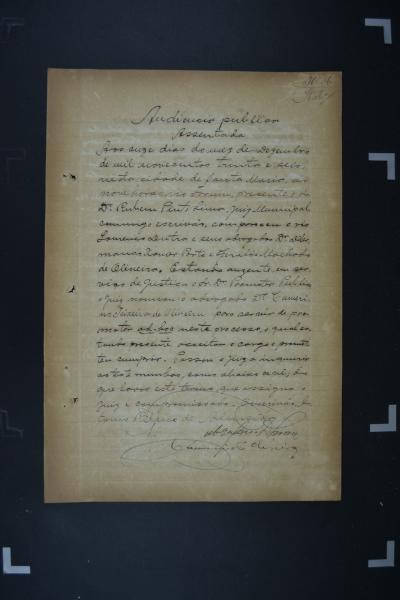 Audiencia publica
Assentada
Aos onze dias do mez de Dezembro
de mil novecentos trinta e seis,
nesta cidade de Santa Maria, as
nove horas, no Forum, presente o
Dr. Rubem Pinto Lima, Juiz Municipal
commigo escrivão, compareceu o réo
Lourenço e seus advogados Dr.
Xavier Porto e Machado
de Oliveira. Estando ausente em ser-
viço de Justiça o dr. Promotor Publico
o Juiz nomeou o advogado Dr.
Teixeira de Oliveira para servir de pro-
motor ad-hoc neste processo, o qual es-
tando presente acceitou o cargo e promet-
teu cumprir. Passou o Juiz a inquirir
as testemunhas, como abaixo se vê, do
que lavro este termo, que assigna o
Juiz e compromissado. Escrivão,
de Oliveira